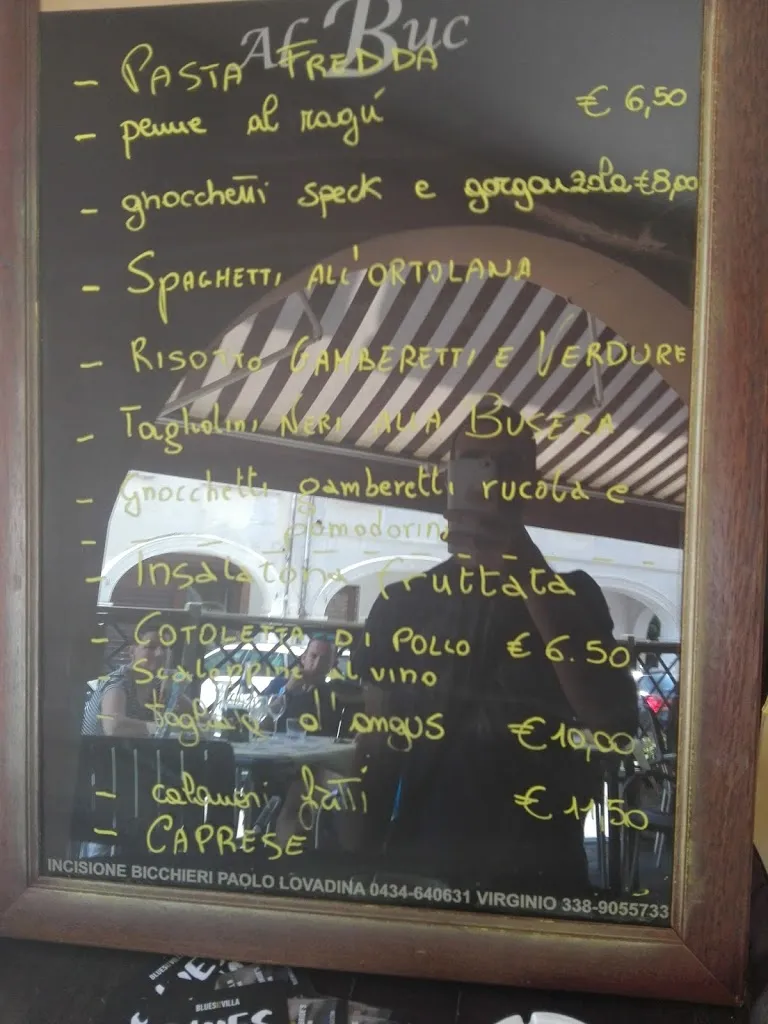 Al Buc
- PASTA FREDDA
- penne al ragú € 6,50
- gnocchetti speck e gorgonzola €8,00
- SPAGHETTI ALL'ORTOLANA
- RISOTTO GAMBERETTI E VERDURE
- Tagliolini NERI ALLA BUSERA
- Gnocchetti gamberetti rucola e
- pomodorini
- Insalatona fruttata
- COTOLETTA DI POLLO € 6.50
- Scaloppine al vino
- Tagliata d'angus € 10,00
- calamari fritti € 11,50
- CAPRESE
INCISIONE BICCHIERI PAOLO LOVADINA 0434-640631 VIRGINIO 338-9055733
BLUES VILLA